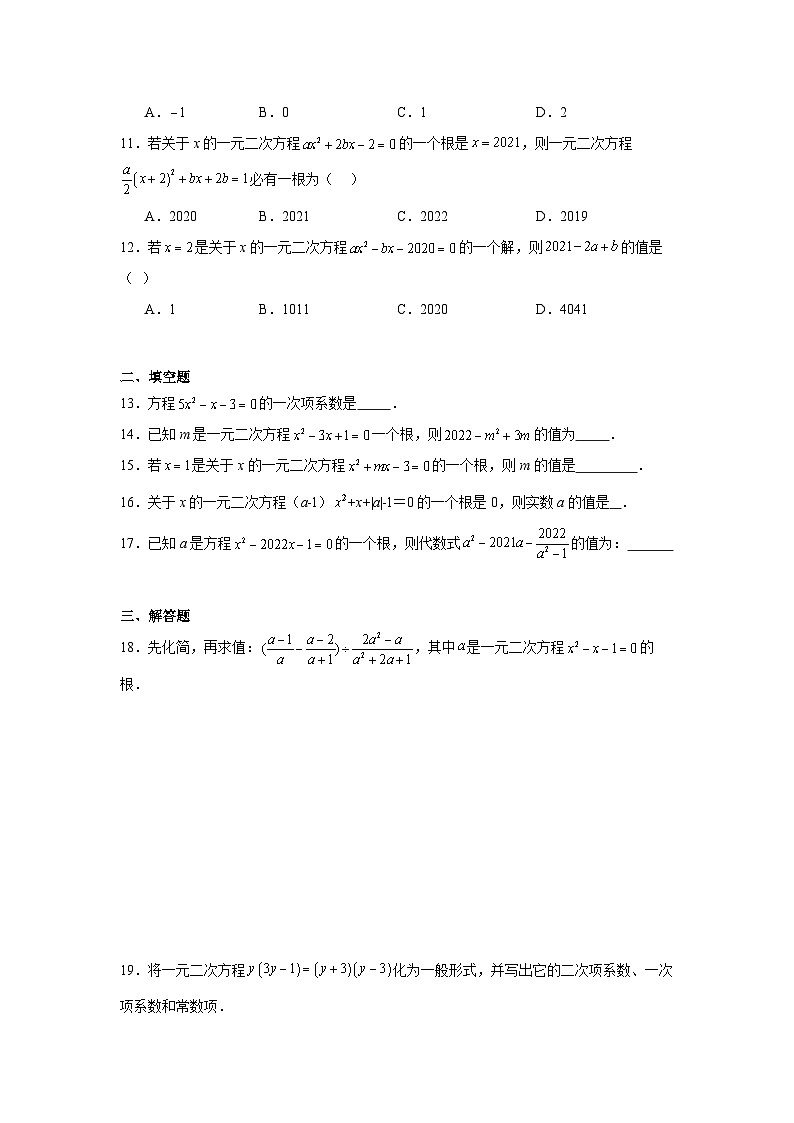 A．－1 B．0 C．1 D．2
11．若关于x的一元二次方程ax²＋2bx－2＝0的一个根是x＝2021，则一元二次方程
a/2(x＋2)²＋bx＋2b＝1必有一根为（ ）
A．2020 B．2021 C．2022 D．2019
12．若x＝2是关于x的一元二次方程ax²－bx－2020＝0的一个解，则2021－2a＋b的值是
（ ）
A．1 B．1011 C．2020 D．4041
二、填空题
13．方程5x²－x－3＝0的一次项系数是_____．
14．已知m是一元二次方程x²－3x＋1＝0一个根，则2022－m²＋3m的值为_____．
15．若x＝1是关于x的一元二次方程x²＋mx－3＝0的一个根，则m的值是_________．
16．关于x的一元二次方程（a-1）x²+x+|a|-1＝0的一个根是0，则实数a的值是__．
17．已知a是方程x²－2022x－1＝0的一个根，则代数式a²－2021a－2022/(a²－1)的值为：_______
三、解答题
18．先化简，再求值：((a－1)/a－(a－2)/(a＋1))÷(2a²－a)/(a²＋2a＋1)，其中a是一元二次方程x²－x－1＝0的
根．
19．将一元二次方程y(3y－1)＝(y＋3)(y－3)化为一般形式，并写出它的二次项系数、一次
项系数和常数项．